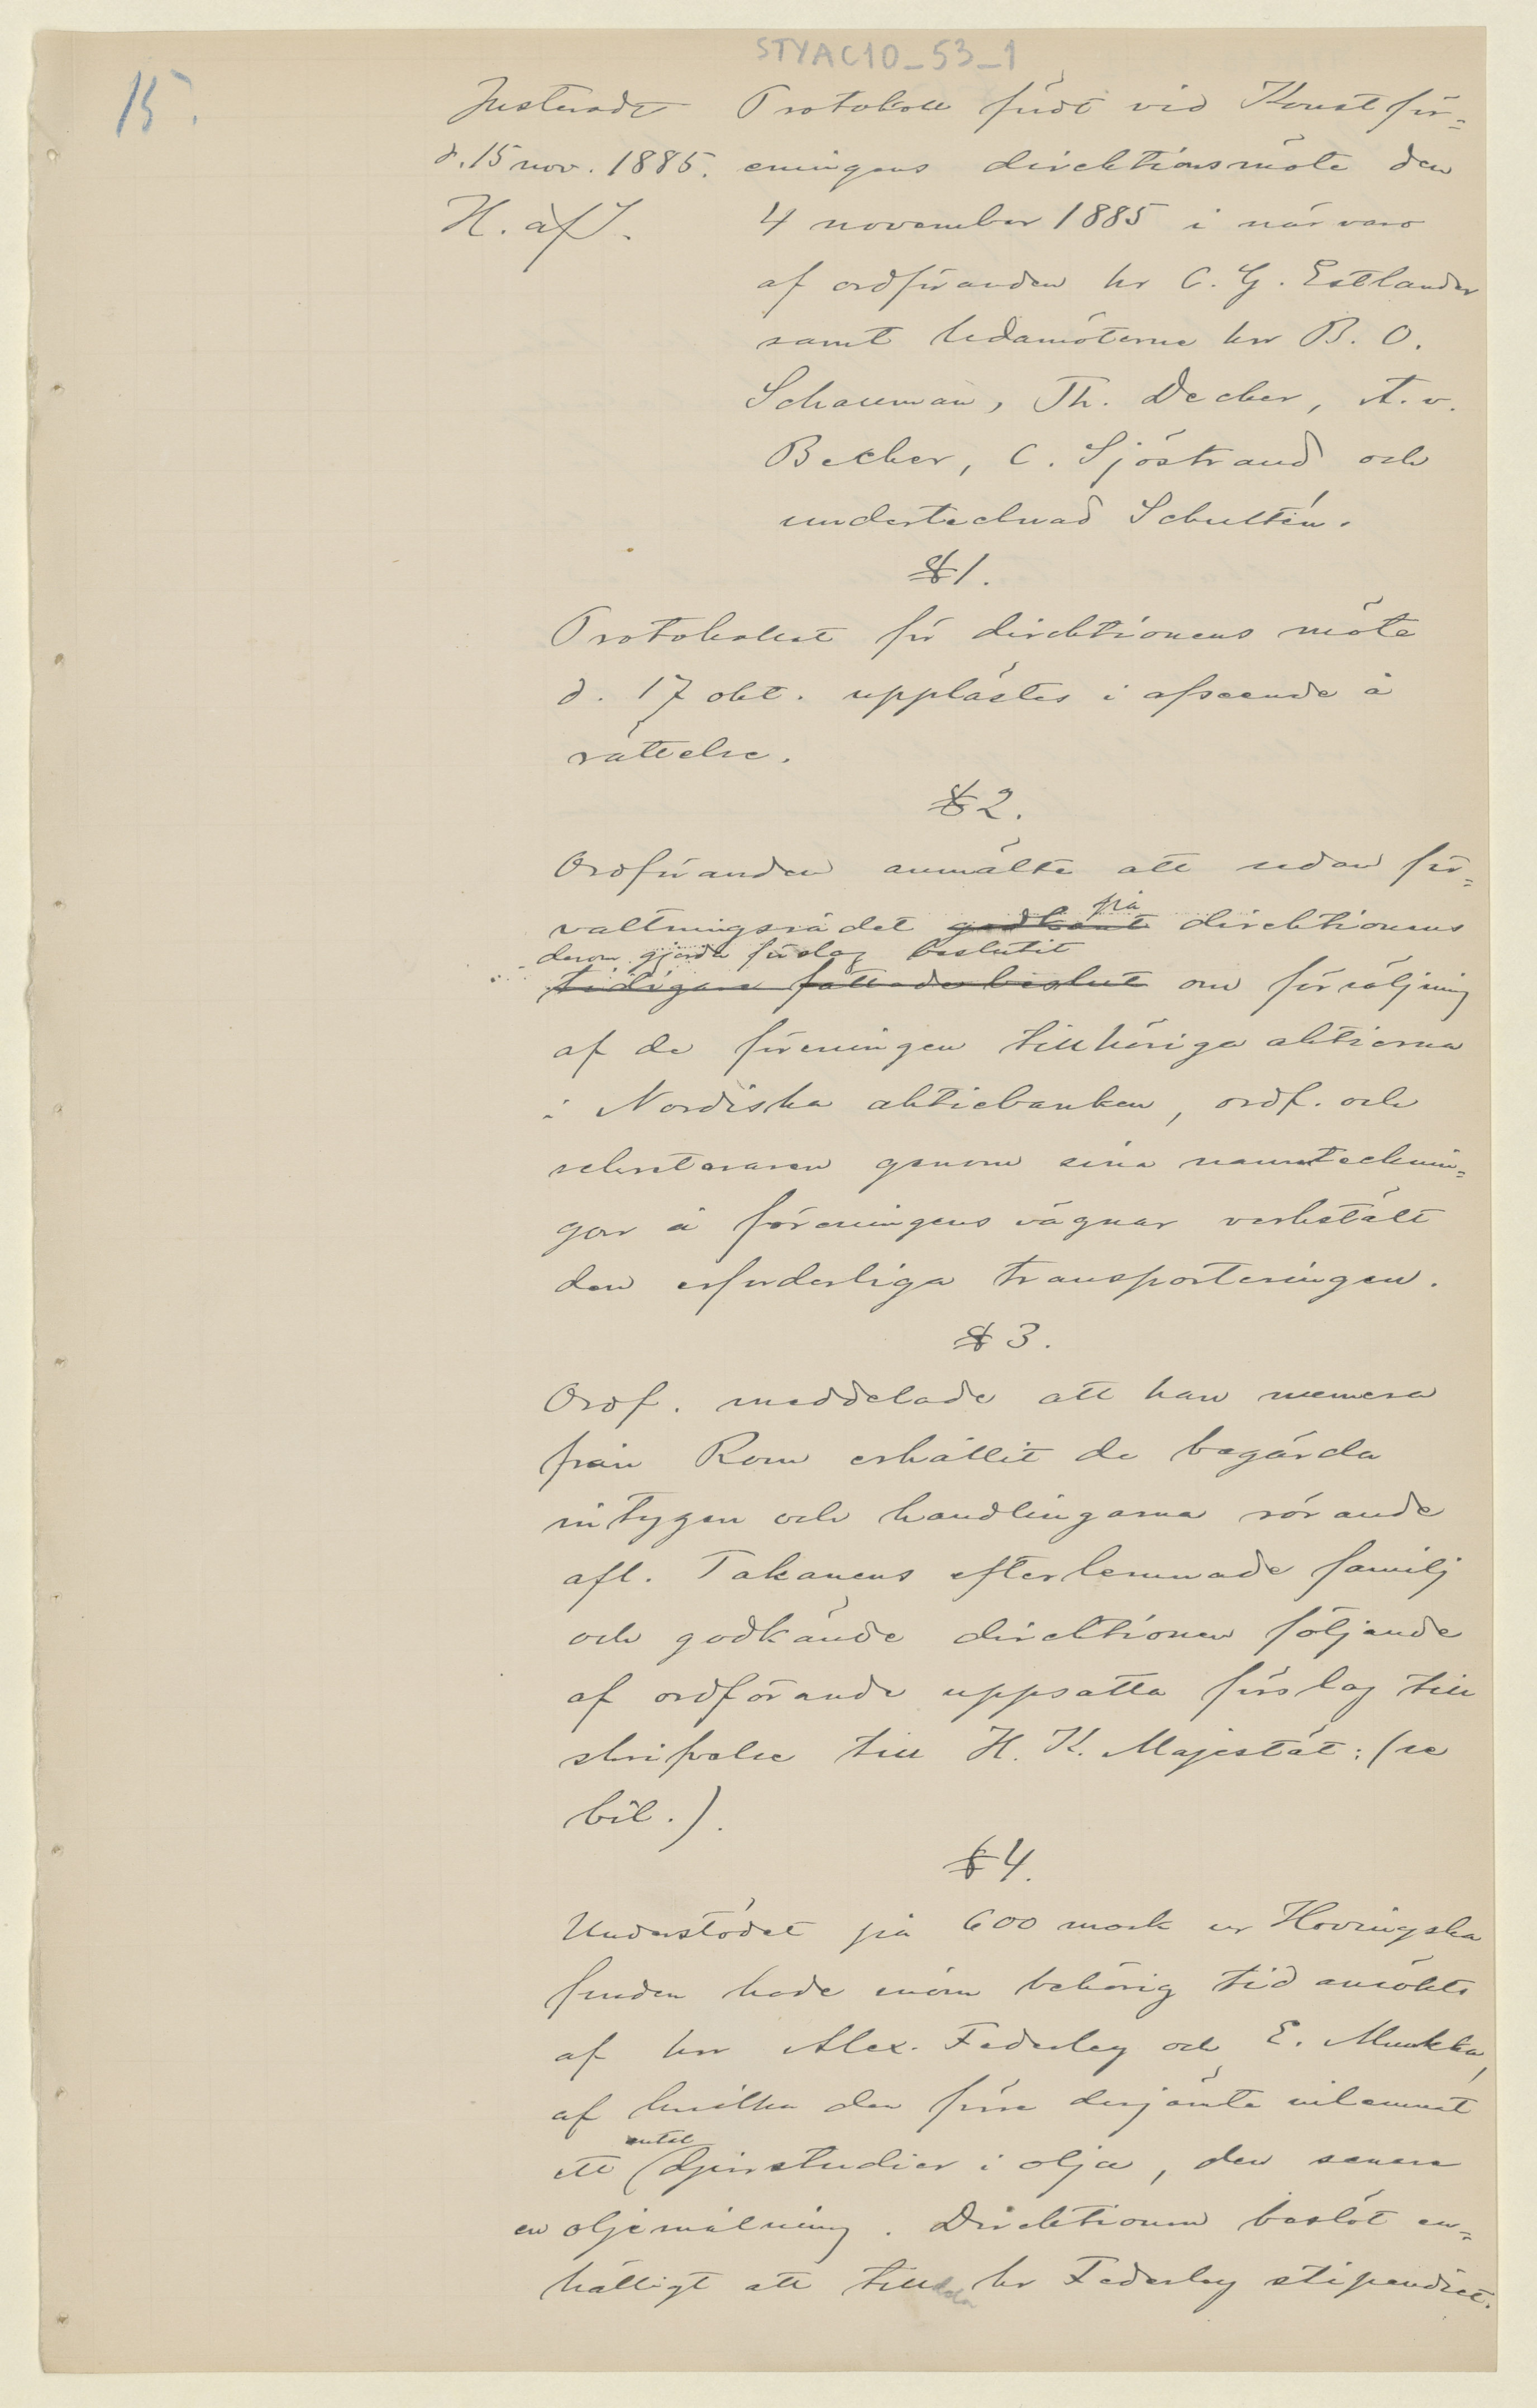 STYAC10_53_1
15.
Justerade
d. 15 nov. 1885.
H. af S.
Protokoll fördt vid Konstför=
eningens direktionsmöte den
4 november 1885 i närvaro
af ordföranden hr C. G. Estlander
samt ledamöterne hrr B. O.
Schauman, Th. Decker, A. v.
Becker, C. Sjöstrand och
undertecknad Schultén.
§ 1.
Protokollet för direktionens möte
d. 17 okt. upplästes i afseende å
rättelse.
§ 2.
Ordföranden anmälte att sedan för=
valtningsrådet godkänt på direktionens
derom gjorda förslag beslutit
tidigare fattade beslut om försäljning
af de föreningen tillhöriga aktierna
i Nordiska aktiebanken, ordf. och
sekreteraren genom sina namntecknin=
gar å föreningens vägnar verkstält
den erforderliga transporteringen.
§ 3.
Ordf. meddelade att han numera
från Rom erhållit de begärda
intygen och handlingarna rörande
afl. Takanens efterlemnade familj
och godkände direktionen följande
af ordförande uppsatta förslag till
skrifvelse till H. K. Majestät: (se
bil.).
§ 4.
Understödet på 600 mark ur Hovingska
fonden hade inom behörig tid ansökts
af hrr Alex. Federley och E. Munkka,
af hvilka den förre derjämte inlemnat
antal
ett djurstudier i olja, den senare
en oljemålning. Direktionen beslöt en=
hälligt att tilldela hr Federley stipendiet.